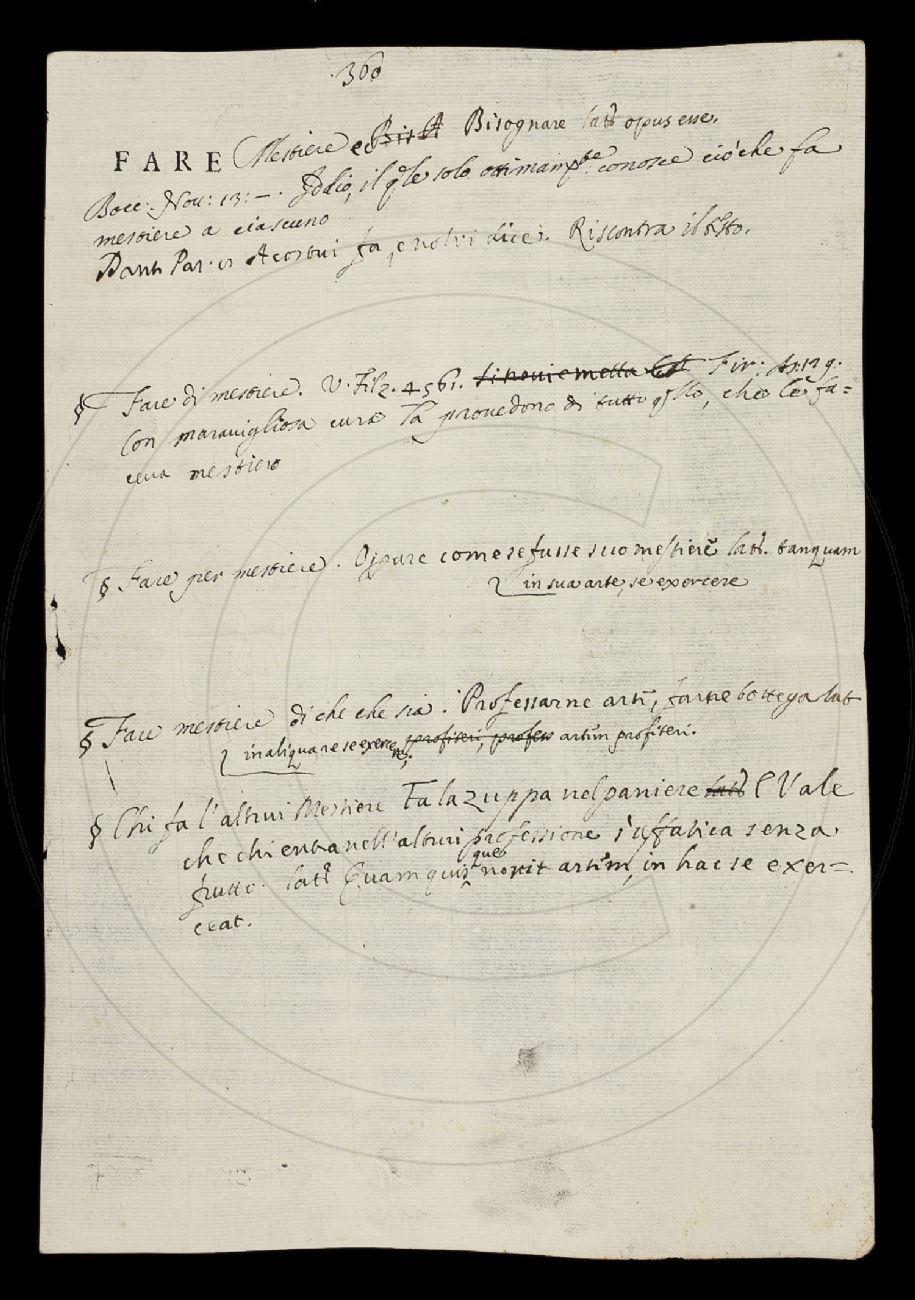 360
FARE Mestiere Bisognare latt opus esse.
Bocc. Nou: 13:—. Iddio, il qle solo ottimamte conosce ciò che fa
mestiere a ciascuno
Dant Par: A costui fa, e nol vi dice. Riscontra il tsto.
§ Fare di mestiere. V. Filz. 4561. Fir: As: 129.
Con maravigliosa cura la provedono di tutto qsto, che le fa=
ceva mestiero
§ Fare per mestiere. Oprare come se fusse suo mestiere lat. tanquam
in sua arte, se exercere
§ Fare mestiere di che che sia: Professarne arte, farne bottega lat
in aliqua re se exercere, profiteri, profess artim profiteri.
§ Chi fa l'altrui Mestiere Fa la zuppa nel paniere latt E Vale
che chi entra nell'altrui professione s'affatica senza
frutto. latt Quam quisque novit artim, in hac se exer=
ceat.